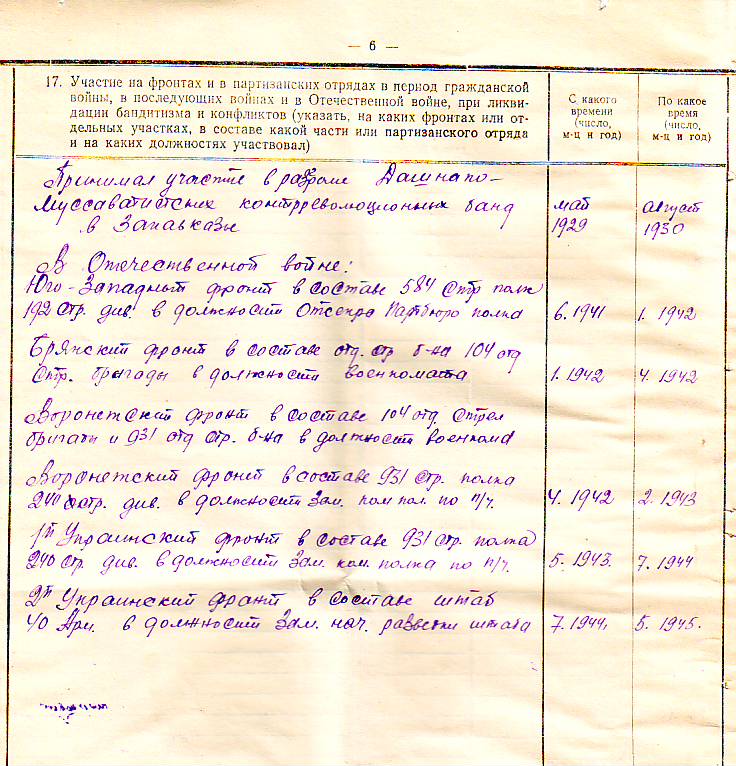 — 6 —
17. Участие на фронтах и в партизанских отрядах в период гражданской
войны, в последующих войнах и в Отечественной войне, при ликви-
дации бандитизма и конфликтов (указать, на каких фронтах или от-
дельных участках, в составе какой части или партизанского отряда
и на каких должностях участвовал)
С какого
времени
(число,
м-ц и год)
По какое
время
(число,
м-ц и год)
Принимал участие в разгроме Дашнако-
Муссаватистских контрреволюционных банд
в Закавказы
май
1929
август
1930
В Отечественной войне:
Юго-Западный фронт в составе 584 стр полк
192 стр. див. в должности Отсекра Партбюро полка
6. 1941
1. 1942
Брянский фронт в составе отд. стр б-на 104 отд
стр. бригады в должности военкомата
1. 1942
4. 1942
Воронежский фронт в составе 104 отд. стрел
бригады и 931 отд стр. б-на в должност военкома
Воронежский фронт в составе 931 стр. полка
240 стр. див. в должности Зам. ком пол. по п/ч.
4. 1942
2. 1943
1й Украинский фронт в составе 931 стр. полка
240 стр. див. в должности Зам. ком. полка по п/ч.
5. 1943.
7. 1944
2й Украинский фронт в составе штаб
40 Арм. в должност Зам. нач. разведки штаба
7. 1944.
5. 1945.